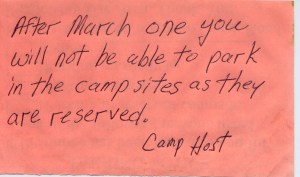 After March one you
will not be able to park
in the campsites as they
are reserved.
Camp Host